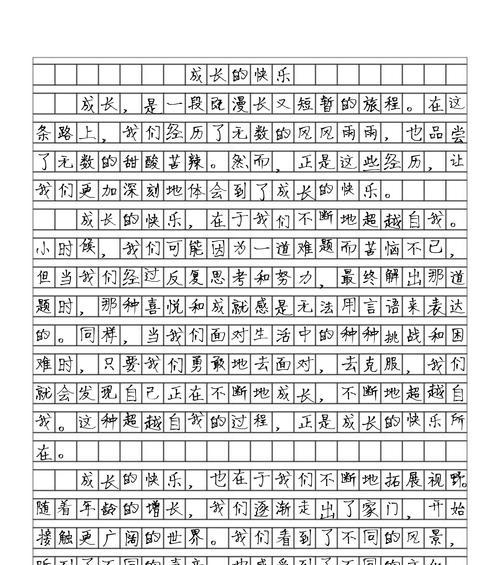 成长的快乐
成长，是一段既漫长又短暂的旅程。在这
条路上，我们经历了无数的风风雨雨，也品尝
了无数的甜酸苦辣。然而，正是这些经历，让
我们更加深刻地体会到了成长的快乐。
成长的快乐，在于我们不断地超越自我。
小时候，我们可能因为一道难题而苦恼不已，
但当我们经过反复思考和努力，最终解出那道
题时，那种喜悦和成就感是无法用言语来表达
的。同样，当我们面对生活中的种种挑战和困
难时，只要我们勇敢地去面对，去克服，我们
就会发现自己正在不断地成长，不断地超越自
我。这种超越自我的过程，正是成长的快乐所
在。
成长的快乐，也在于我们不断地拓展视野。
随着年龄的增长，我们逐渐走出了家门，开始
接触更广阔的世界。我们看到了不同的风景，